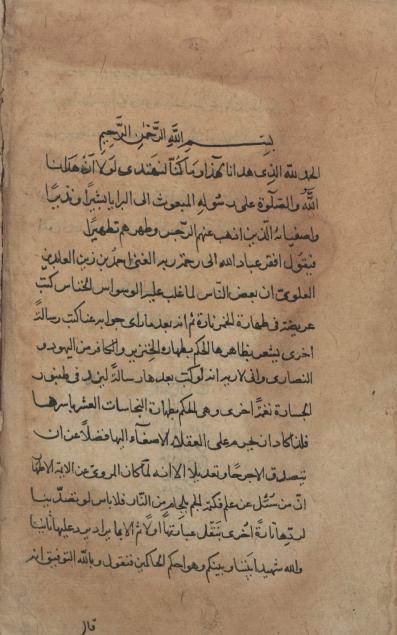 بسم الله الرحمن الرحيم
الحمد لله الذى هدانا لهذا وما كنا لنهتدى لولا ان هدانا
الله والصلوة على رسوله المبعوث الى البرايا بشيرا ونذيرا
واصفيائه الذين اذهب عنهم الرجس وطهرهم تطهيرا
فيقول افقر عباد الله الى رحمة ربه الغنى احمد بن زين العابدين
العلوى ان بعض الناس لما غلب عليه الوسواس الخناس كتب
عريضة فى طهارة الخمر تارة ثم انه بعد ما راى جوابه عنا كتب رسالة
اخرى يشعر بظاهرها الحكم بطهارة الخنزير والكافر من اليهود و
النصارى وانى لا ريب انه لو كتب بعدها رسالة ليزيد فى طنبور
الجسارة نغمة اخرى وهى الحكم بطهارة النجاسات العشر باسرها
فلذا كاد ان يحرم على العقلاء الاصغاء اليها فضلا عن ان
يتصدى لها جرحا وتعديلا الا انه لما كان المروى عن الائمة الاطهار
ان من سئل عن علم فكتمه الجم بلجام من النار فلا باس لو تصدينا
لردها تارة اخرى بنقل عباراتها اولا ثم الايماء يراد عليها ثانيا
والله شهيد بيننا وبينكم وهو احكم الحاكمين فنقول وبالله التوفيق انه
قال